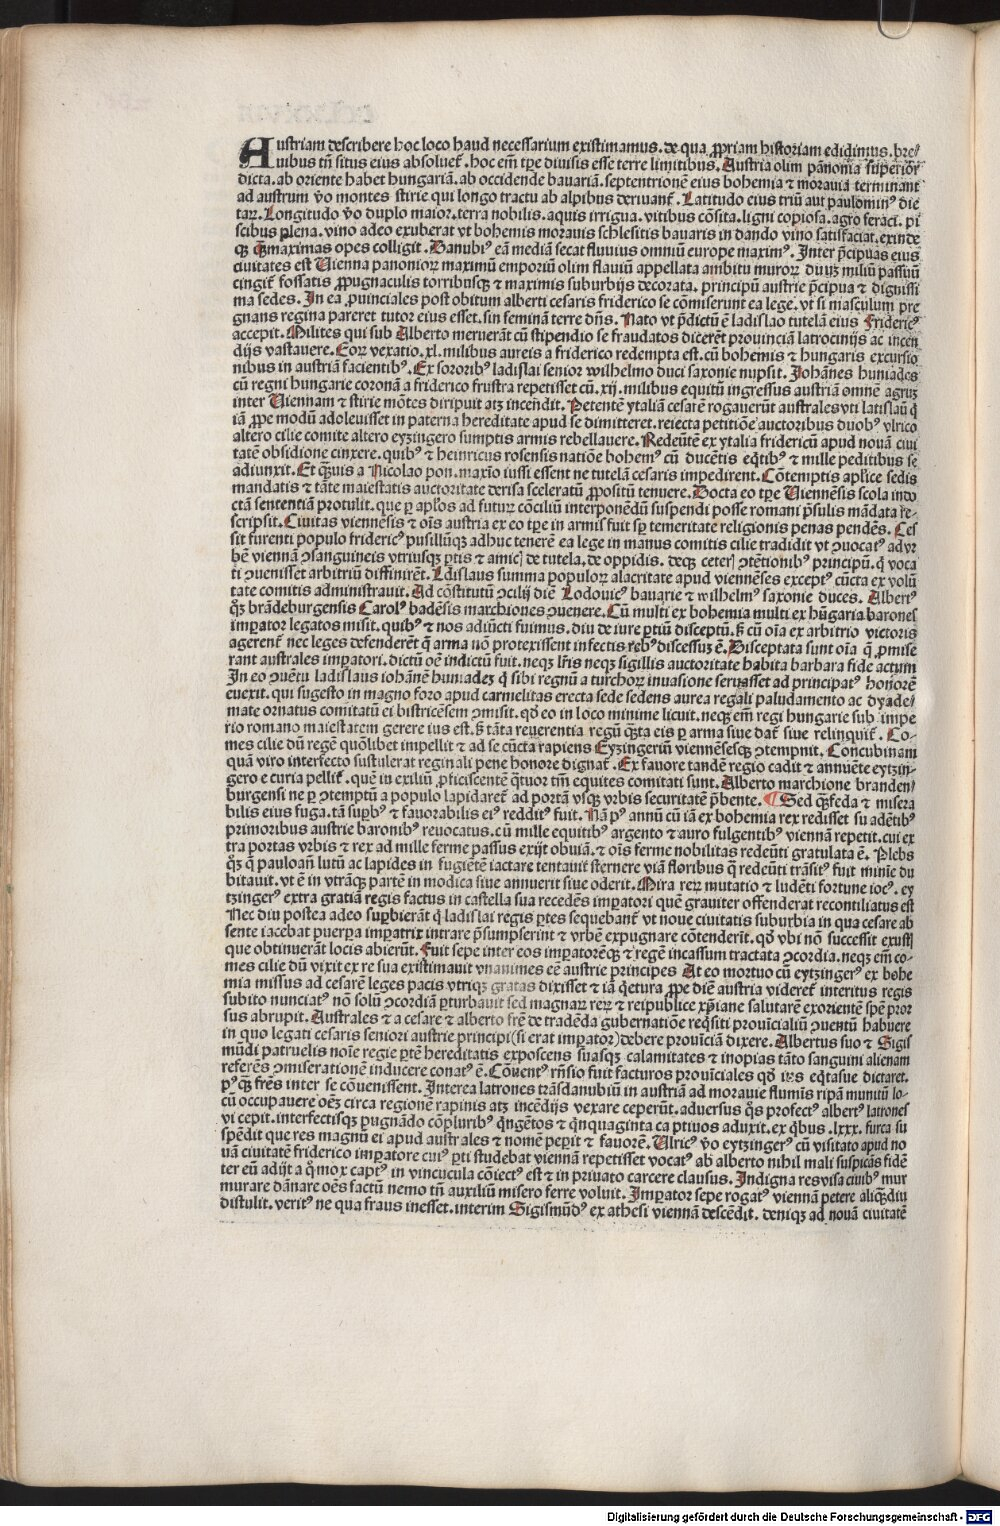 Austriam describere hoc loco haud necessarium existimamus. de qua ꝓpriam historiam edidimus. bre/
vibus tñ situs eius absoluet᷑. hoc em̄ tꝑe diuisis esse terre limitibus. Austria olim pānonia superior
dicta. ab oriente habet hungariā. ab occidende bavariā. septentrionē eius bohemia ⁊ moravia terminant
ad austrum v̄o montes stirie qui longo tractu ab alpibus derivant᷑. Latitudo eius triū aut paulominꝰ die
taꝝ. Longitudo v̄o duplo maior. terra nobilis. aquis irrigua. vitibus cōsita. ligni copiosa. agro feraci. pi
scibus plena. vino adeo exuberat vt bohemis moravis schlesitis bavaris in dando vino satisfaciat. exinde
qꝫ maximas opes colligit. Danubiꝰ eā mediā secat fluvius omniū europe maximꝰ. Inter p̄cipuas eius
civitates est Uienna panonioꝝ maximū emporiū olim flaviū appellata ambitu muroꝝ duūꝫ miliū passuū
cingit᷑ fossatis ꝓpugnaculis torribusqꝫ ⁊ maximis suburbijs decorata. principū austrie p̄cipua ⁊ dignissi
ma sedes. In ea ꝓuinciales post obitum alberti cesaris friderico se cōmiserunt ea lege. vt si masculum pre
gnans regina pareret tutor eius esset. sin feminā terre dn̄s. Nato vt p̄dictū ē ladislao tutelā eius Fridericꝰ
accepit. Milites qui sub Alberto meruerāt cū stipendio se fraudatos dicerēt provinciā latrocinijs ac incen
dijs vastauere. Eoꝝ vexatio .xl. milibus aureis a friderico redempta est. cū bohemis ⁊ hungaris excursio
nibus in austriā facientibꝰ. Ex sororibꝰ ladislai senior wilhelmo duci saxonie nupsit. Johānes huniades
cū regni hungarie coronā a friderico frustra repetisset cū .xij. milibus equitū ingressus austriā omnē agrūꝫ
inter Uiennam ⁊ stirie mōtes diripuit atꝫ incendit. Petentē ytaliā cesarē rogauerūt australes vti latislaū q̄
iā ꝓpe modū adoleuisset in paterna hereditate apud se dimitteret. reiecta petitiōe auctoribus duobꝰ vlrico
altero cilie comite altero eyzingero sumptis armis rebellauere. Redeūtē ex ytalia fridericū apud novā civi
tatē obsidione cinxere. quibꝰ ⁊ heinricus rosensis natiōe bohemꝰ cū ducētis eq̄tibꝰ ⁊ mille peditibus se
adiunxit. Et q̄ꝫuis a Nicolao pon. maxīo iussi essent ne tutelā cesaris impedirent. Cōtemptis apl̄ice sedis
mandatis ⁊ tāte maiestatis auctoritate derisa sceleratū ꝓpositū tenuere. Docta eo tꝑe Uiennēsis scola indo
ctā sententiā protulit. que ꝑ apl̄os ad futuꝝ cōciliū interponēdū suspendi posse romani p̄sulis mādata re-
scripsit. Civitas viennēsis ⁊ oīs austria ex eo tꝑe in armis fuit suꝑ temeritate religionis penas pendēs. Ces
sit furenti populo fridericꝰ pusillūqꝫ adhuc tenerē ea lege in manus comitis cilie tradidit vt ꝯuocatꝰ ad vr
bē viennā ꝯsanguineis vtriusqꝫ ꝑtis ⁊ amicꝭ de tutela. de oppidis. deqꝫ ceterꝭ ꝯtētionibꝰ principū. q̄ voca
ti ꝯuenissēt arbitriū diffinirēt. Ladislaus summa populoꝝ alacritate apud viennēses exceptꝰ cūcta ex volū
tate comitis administrauit. Ad cōstitutū ꝯcilij diē Lodouicꝰ bavarie ⁊ wilhelmꝰ saxonie duces. Albertꝰ
q̊ꝫ brādeburgensis Carolꝰ badēsis marchiones ꝯuenere. Cū multi ex bohemia multi ex hūgaria barones
imꝑator legatos misit. quibꝰ ⁊ nos adiūcti fuimus. diu de iure ꝑtiū disceptū. ꝫ cū oīa ex arbitrio victoris
agerent᷑ nec leges defenderēt q̄ arma nō protexissent infectis rebꝰ discessuꝫ ē. Disceptata sunt oīa q̄ ꝓmise
rant australes imꝑatori. dictū oē indictū fuit. neqꝫ lr̄is neqꝫ sigillis auctoritate habita barbara fide actum
In eo ꝯuētu ladislaus iohānē huniadeꝫ q̄ sibi regnū a turchoꝝ invasione servasset ad principatꝰ honorē
evexit. qui sugesto in magno foro apud carmelitas erecta sede sedens aurea regali paludamento ac dyade/
mate ornatus comitatū ei bistricēsem ꝯmisit. qd̄ eo in loco minime licuit. neqꝫ em̄ regi hungarie sub impe
rio romano maiestatem gerere ius est. ꝫ tāta reverentia regū q̄sita eis ꝑ arma siue dat᷑ siue relinquit᷑. Co-
mes cilie dū regē quōlibet impellit ⁊ ad se cūcta rapiens Eyzingeriū viennēsesqꝫ ꝯtempnit. Concubinam
quā viro interfecto sustulerat reginali pene honore dignat᷑. Ex favore tandē regio cadit ⁊ annuēte eytzin-
gero e curia pellit᷑. quē in exiliū ꝓficiscentē q̄tuor tm̄ equites comitati sunt. Alberto marchione branden/
burgensi ne ꝑ ꝯtemptū a populo lapidaret᷑ ad portā vsqꝫ vrbis securitatē p̄bente. ¶ Sed q̄ꝫ feda ⁊ misera
bilis eius fuga. tā suꝑbꝰ ⁊ favorabilis eiꝰ redditꝰ fuit. Nā pꝰ annū cū iā ex bohemia rex redisset suadētibꝰ
primoribus austrie baronibꝰ revocatus. cū mille equitibꝰ argento ⁊ auro fulgentibꝰ viennā repetit. cui ex
tra portas vrbis ⁊ rex ad mille ferme passus exijt obuiā. ⁊ oīs ferme nobilitas redeūti gratulata ē. Plebs
q̊ꝫ q̄ pauloañ lutū ac lapides in fugiētē iactare tentauit sternere viā floribus q̄ redeūti trāsitꝰ fuit minīe du
bitauit. vt ē in vtrāqꝫ partē in modica siue annuerit siue oderit. Mira reꝝ mutatio ⁊ ludēti fortune iocꝰ. ey
tzingerꝰ extra gratiā regis factus in castella sua recedēs imꝑatori quē graviter offenderat reconciliatus est
Nec diu postea adeo suꝑbierāt q̄ ladislai regis ꝑtes sequebant᷑ vt noue civitatis suburbia in qua cesare ab
sente iacebat puerꝑa imꝑatrix intrare p̄sumpserint ⁊ vrbē expugnare cōtenderīt. qd̄ vbi nō successit exustꝭ
que obtinuerāt locis abierūt. Fuit sepe inter eos imꝑatorēqꝫ ⁊ regē incassum tractata ꝯcordia. neqꝫ em̄ co-
mes cilie dū vixit ex re sua existimauit vnanimes eē austrie principes At eo mortuo cū eytzingerꝰ ex bohe
mia missus ad cesarē leges pacis vtriqꝫ gratas dixisset ⁊ iā q̄etura ꝓpe diē austria videret᷑ interitus regis
subito nunciatꝰ nō solū ꝯcordiā ꝑturbauit sed magnaꝝ reꝝ ⁊ reipublice xp̄iane salutarē exorientē spē pror
sus abrupit. Australes ⁊ a cesare ⁊ alberto fr̄e de tradēda gubernatiōe req̄siti provīcialiū ꝯuentū habuere
in quo legati cesaris seniori austrie principi (si erat imꝑator) debere prouīciā dixere. Albertus suo ⁊ Sigis
mūdi patruelis noīe regie ꝑtē hereditatis exposcens suasqꝫ calamitates ⁊ inopias tāto sanguini alienam
referēs ꝯmiserationē inducere conatꝰ ē. Cōuent᷑ rn̄sio fuit facturos prouīciales qd̄ ius eq̄tasue dictaret.
pꝰ q̄ꝫ fr̄es inter se cōuenissent. Interea latrones trāsdanubiū in austriā ad moravie flumīs ripā munitū lo-
cū occupauere oēꝫ circa regionē rapinis atꝫ incēdijs vexare ceperūt. adversus q̊s profectꝰ albertꝰ latrones
vi cepit. interfectisqꝫ pugnādo cōpluribꝰ q̄ngētos ⁊ q̄nquaginta captiuos aduxit. ex q̄bus .lxxx. furca su
spēdit que res magnū ei apud australes ⁊ nomē peꝑit ⁊ favorē. Ulricꝰ v̄o eytzingerꝰ cū visitato apud no
vā civitatē friderico imꝑatore cuiꝰ ꝑti studebat viennā repetisset vocatꝰ ab alberto nihil mali suspicās fidē
ter eū adijt a q̊ mox captꝰ in vincucula cōiectꝰ est ⁊ in privato carcere clausus. Indigna res visa civibꝰ mur
murare dānare oēs factū nemo tn̄ auxiliū misero ferre voluit. Imꝑator sepe rogatꝰ viennā petere aliq̄ꝫdiu
distulit. veritꝰ ne qua fraus inesset. interim Sigismūdꝰ ex athesi viennā descēdit. deniqꝫ ad novā civitatē
Digitalisierung gefördert durch die Deutsche Forschungsgemeinschaft - DFG